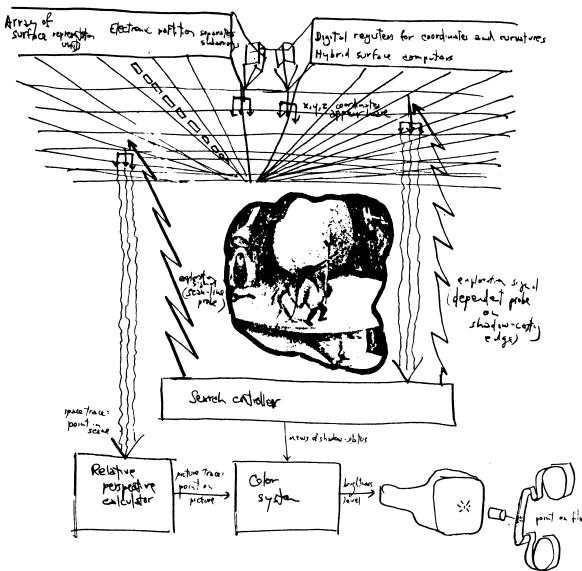 Array of
surface representation
units
Electronic partition separates
subarrays
Digital registers for coordinates and curvatures
Hybrid surface computers
x, y, z coordinates
appear here
exploration
signal
(scan-line
probe)
exploration signal
(dependent probe
on
shadow-casting
edges)
Search controller
space trace:
point in
scene
news of shadow-status
Relative
perspective
calculator
picture trace:
point on
picture
Color
system
brightness
level
point on film